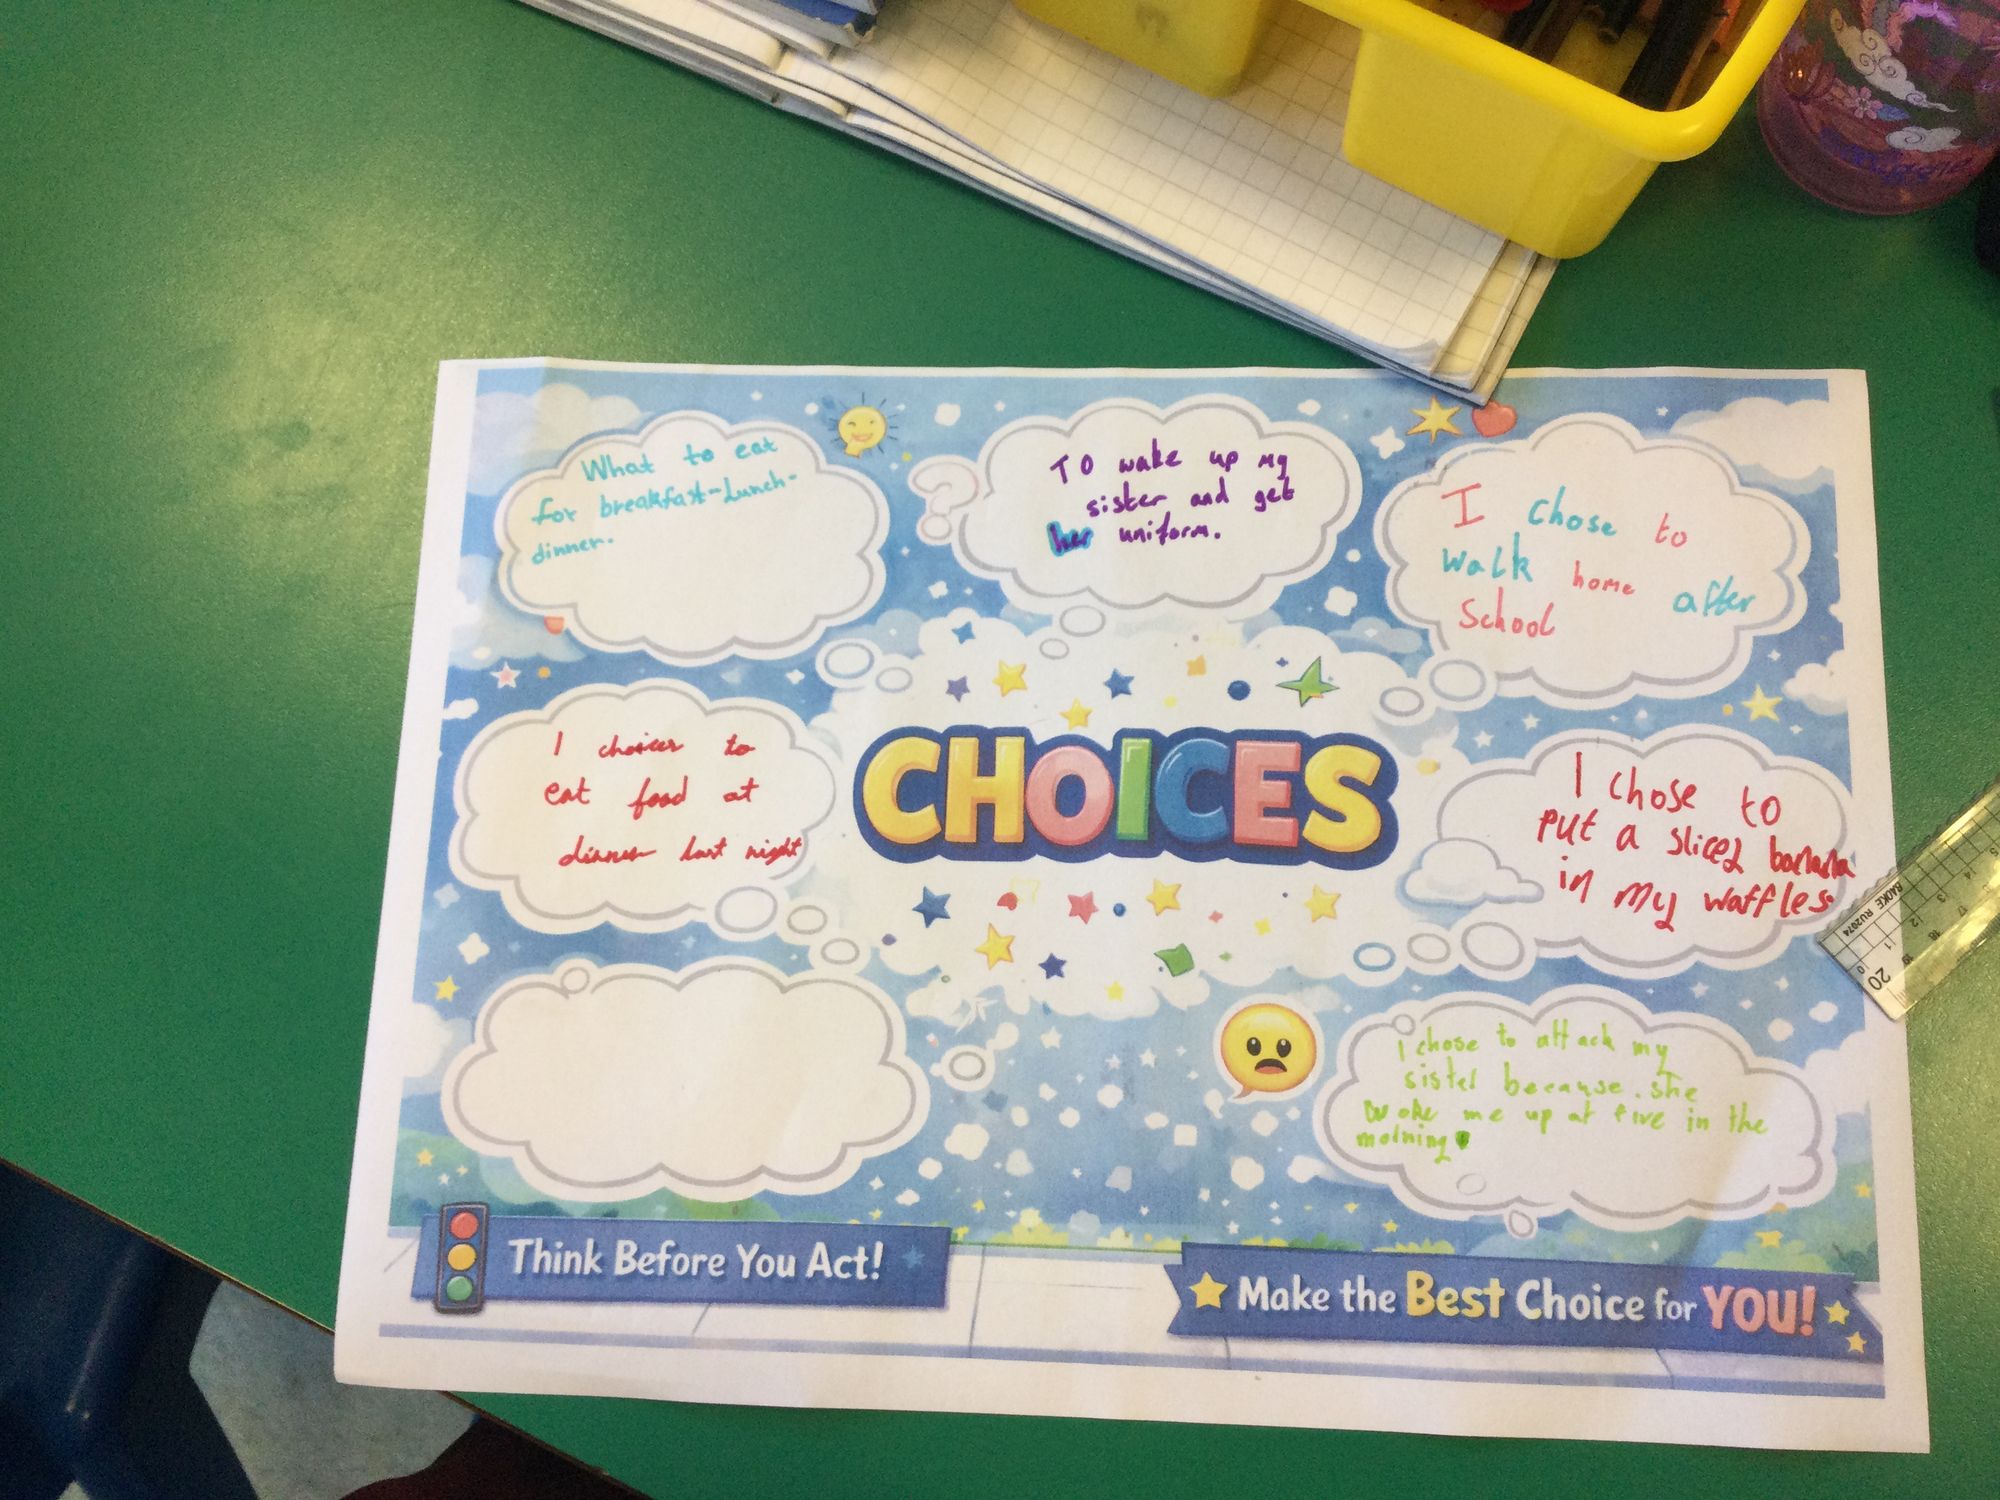 What to eat
for breakfast-Lunch-
dinner.
TO wake up my
sister and get
her uniform.
I chose to
walk home after
School
I choices to
eat food at
dinner last night
CHOICES
I chose to
put a sliced banana
in my waffles.
I chose to attack my
sister because she
woke me up at five in the
morning
Think Before You Act!
Make the Best Choice for YOU!
BAOKE RU2074
20